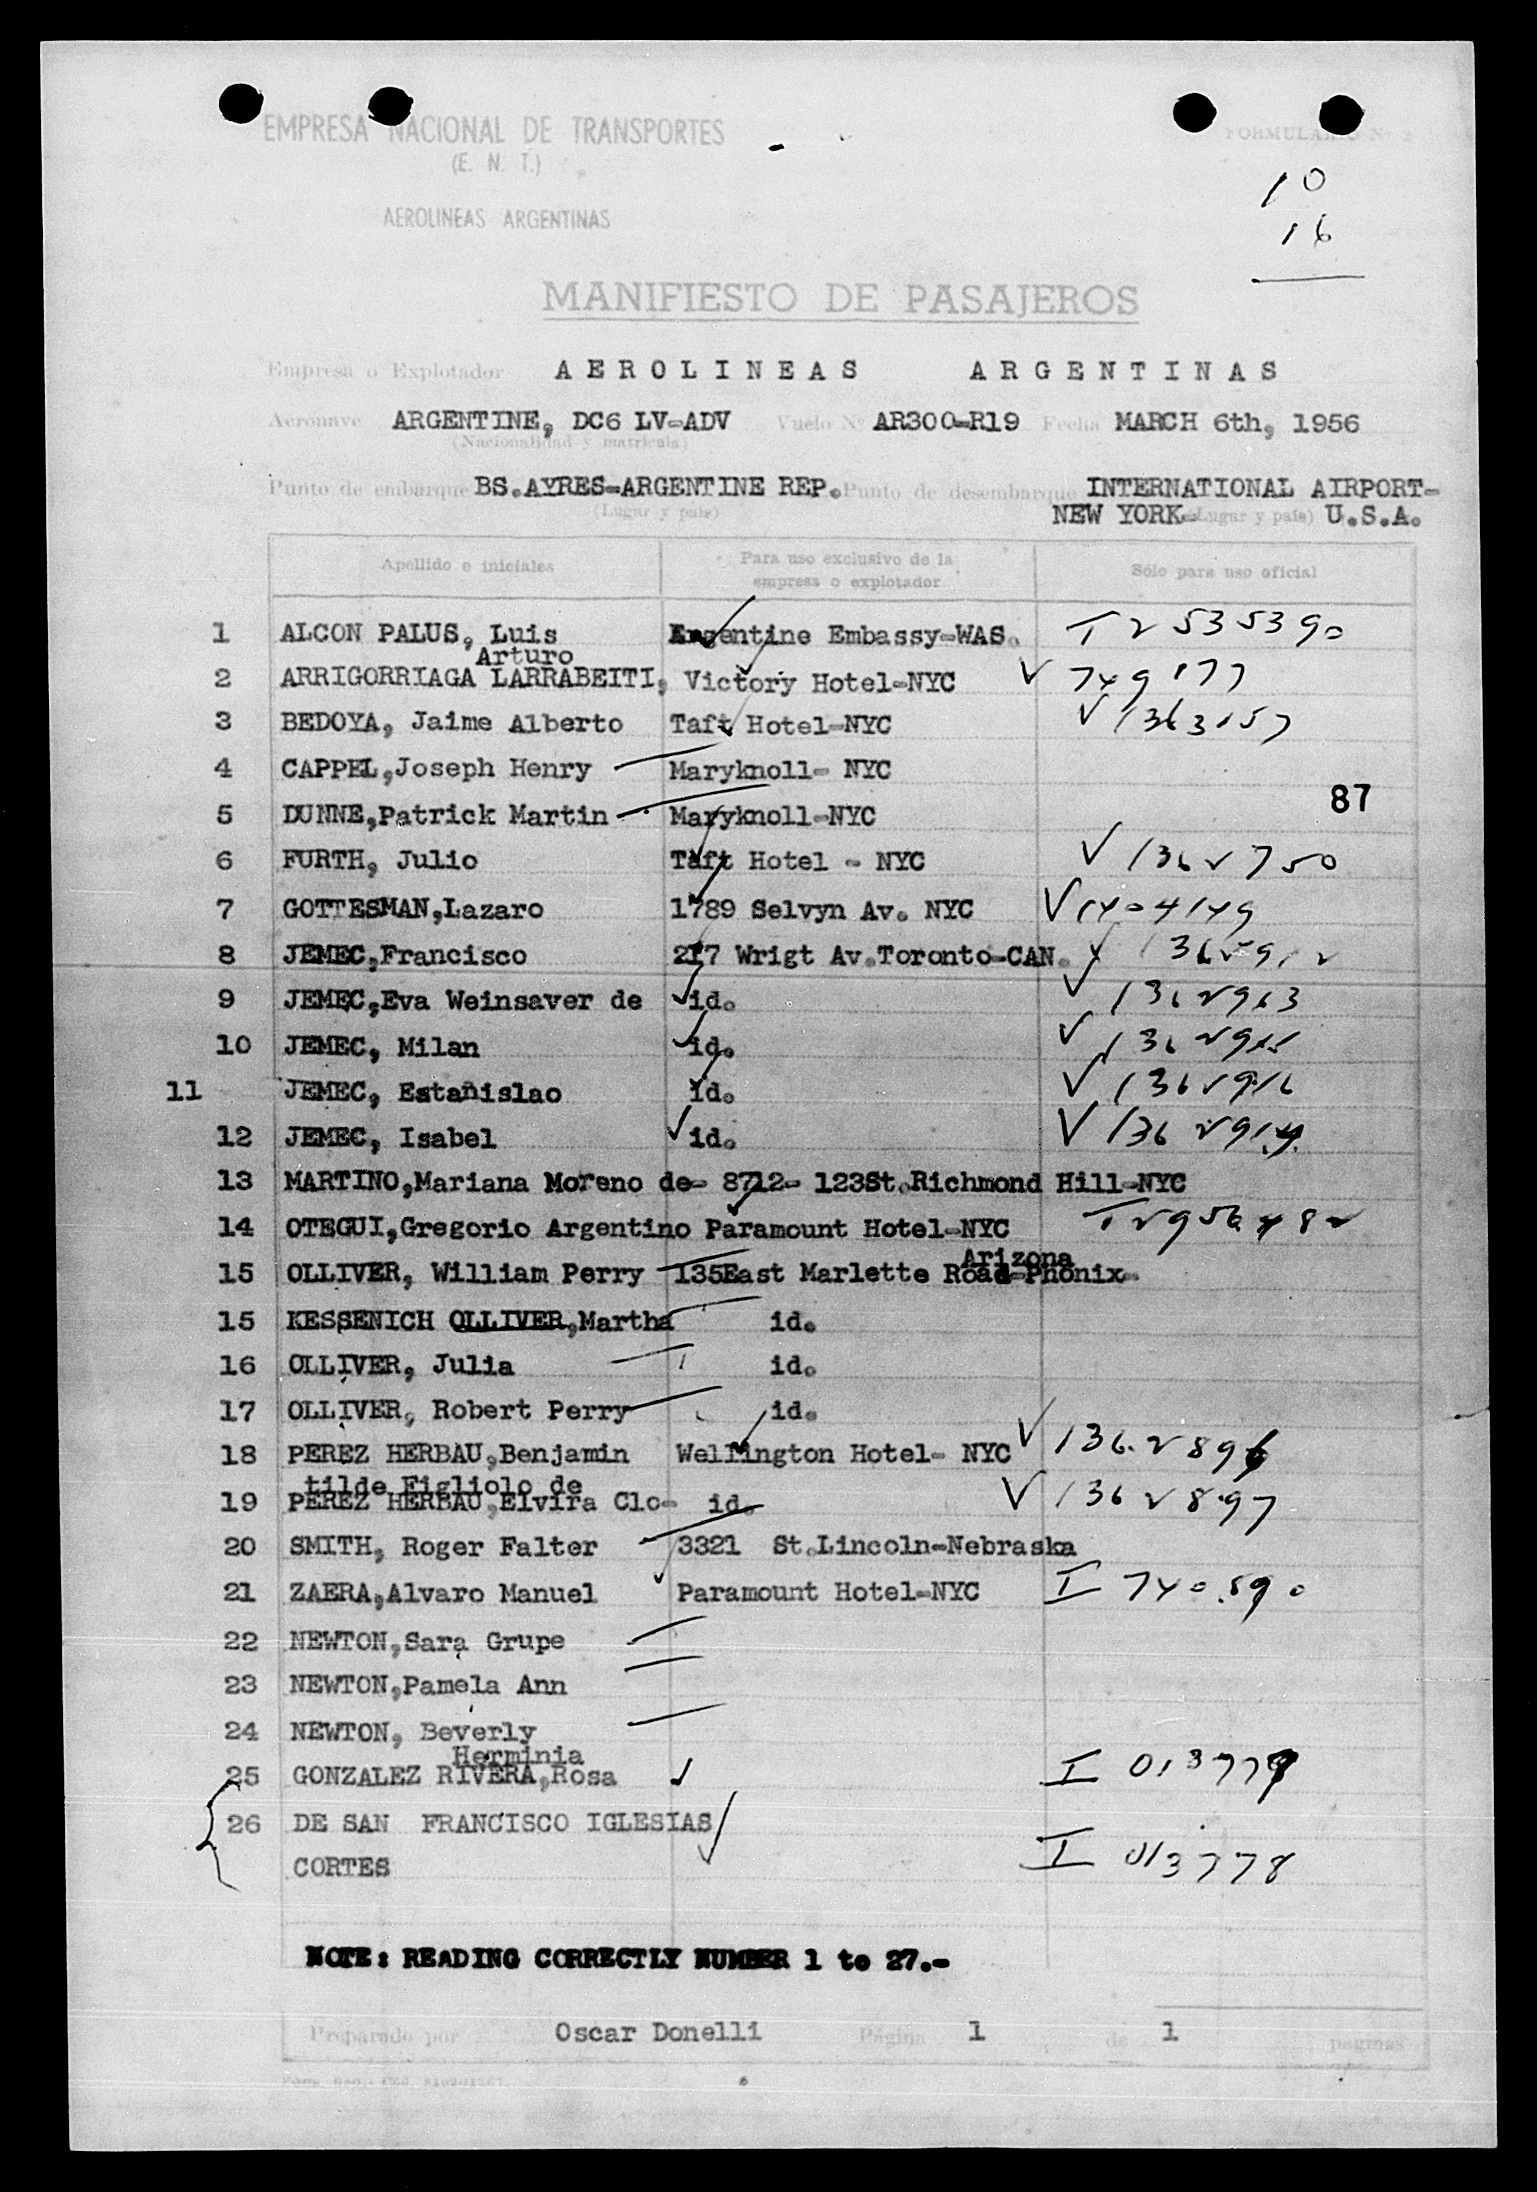 EMPRESA NACIONAL DE TRANSPORTES
(E. N. T.)
FORMULARIO Nº 2
AEROLINEAS ARGENTINAS
10
16
MANIFIESTO DE PASAJEROS
Empresa o Explotador AEROLINEAS ARGENTINAS
Aeronave ARGENTINE, DC6 LV-ADV Vuelo Nº AR300-R19 Fecha MARCH 6th, 1956
(Nacionalidad y matrícula)
Punto de embarque BS.AYRES-ARGENTINE REP. Punto de desembarque INTERNATIONAL AIRPORT-
(Lugar y país) NEW YORK- (Lugar y país) U.S.A.
Apellido e iniciales Para uso exclusivo de la empresa o explotador Sólo para uso oficial
1 ALCON PALUS, Luis Argentine Embassy-WAS. T 2535390
Arturo
2 ARRIGORRIAGA LARRABEITI, Victory Hotel-NYC V 749177
3 BEDOYA, Jaime Alberto Taft Hotel-NYC V 1363157
4 CAPPEL,Joseph Henry Maryknoll- NYC
87
5 DUNNE,Patrick Martin Maryknoll-NYC
6 FURTH, Julio Taft Hotel - NYC V 1362750
7 GOTTESMAN,Lazaro 1789 Selvyn Av. NYC V 1404149
8 JEMEC,Francisco 217 Wrigt Av.Toronto-CAN. V 1362912
9 JEMEC,Eva Weinsaver de id. V 1362913
10 JEMEC, Milan id. V 1362915
11 JEMEC, Estanislao id. V 1362916
12 JEMEC, Isabel id. V 1362914
13 MARTINO,Mariana Moreno de- 8712- 123St.Richmond Hill-NYC
14 OTEGUI,Gregorio Argentino Paramount Hotel-NYC T 2956482
Arizona
15 OLLIVER, William Perry 135East Marlette Road-Phonix-
15 KESSENICH OLLIVER,Martha id.
16 OLLIVER, Julia id.
17 OLLIVER, Robert Perry id.
18 PEREZ HERBAU,Benjamin Wellington Hotel- NYC V 1362896
tilde Figliolo de
19 PEREZ HERBAU,Elvira Clo- id. V 1362897
20 SMITH, Roger Falter 3321 St.Lincoln-Nebraska
21 ZAERA,Alvaro Manuel Paramount Hotel-NYC I 740890
22 NEWTON,Sara Grupe
23 NEWTON,Pamela Ann
24 NEWTON, Beverly
Herminia
25 GONZALEZ RIVERA,Rosa I 013779
26 DE SAN FRANCISCO IGLESIAS
CORTES I 013778
NOTE: READING CORRECTLY NUMBER 1 to 27.-
Preparado por Oscar Donelli Página 1 de 1 páginas